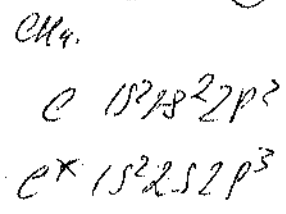 CH₄.
C 1S²2S²2P²
C* 1S²2S2P³